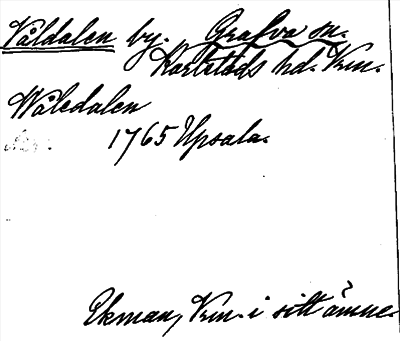 Våldalen by. Grafva sn.
Karlstads hd. Vrm.
Wåledalen
1765 Upsala.
Ekman, Vrm. i sitt ämne.